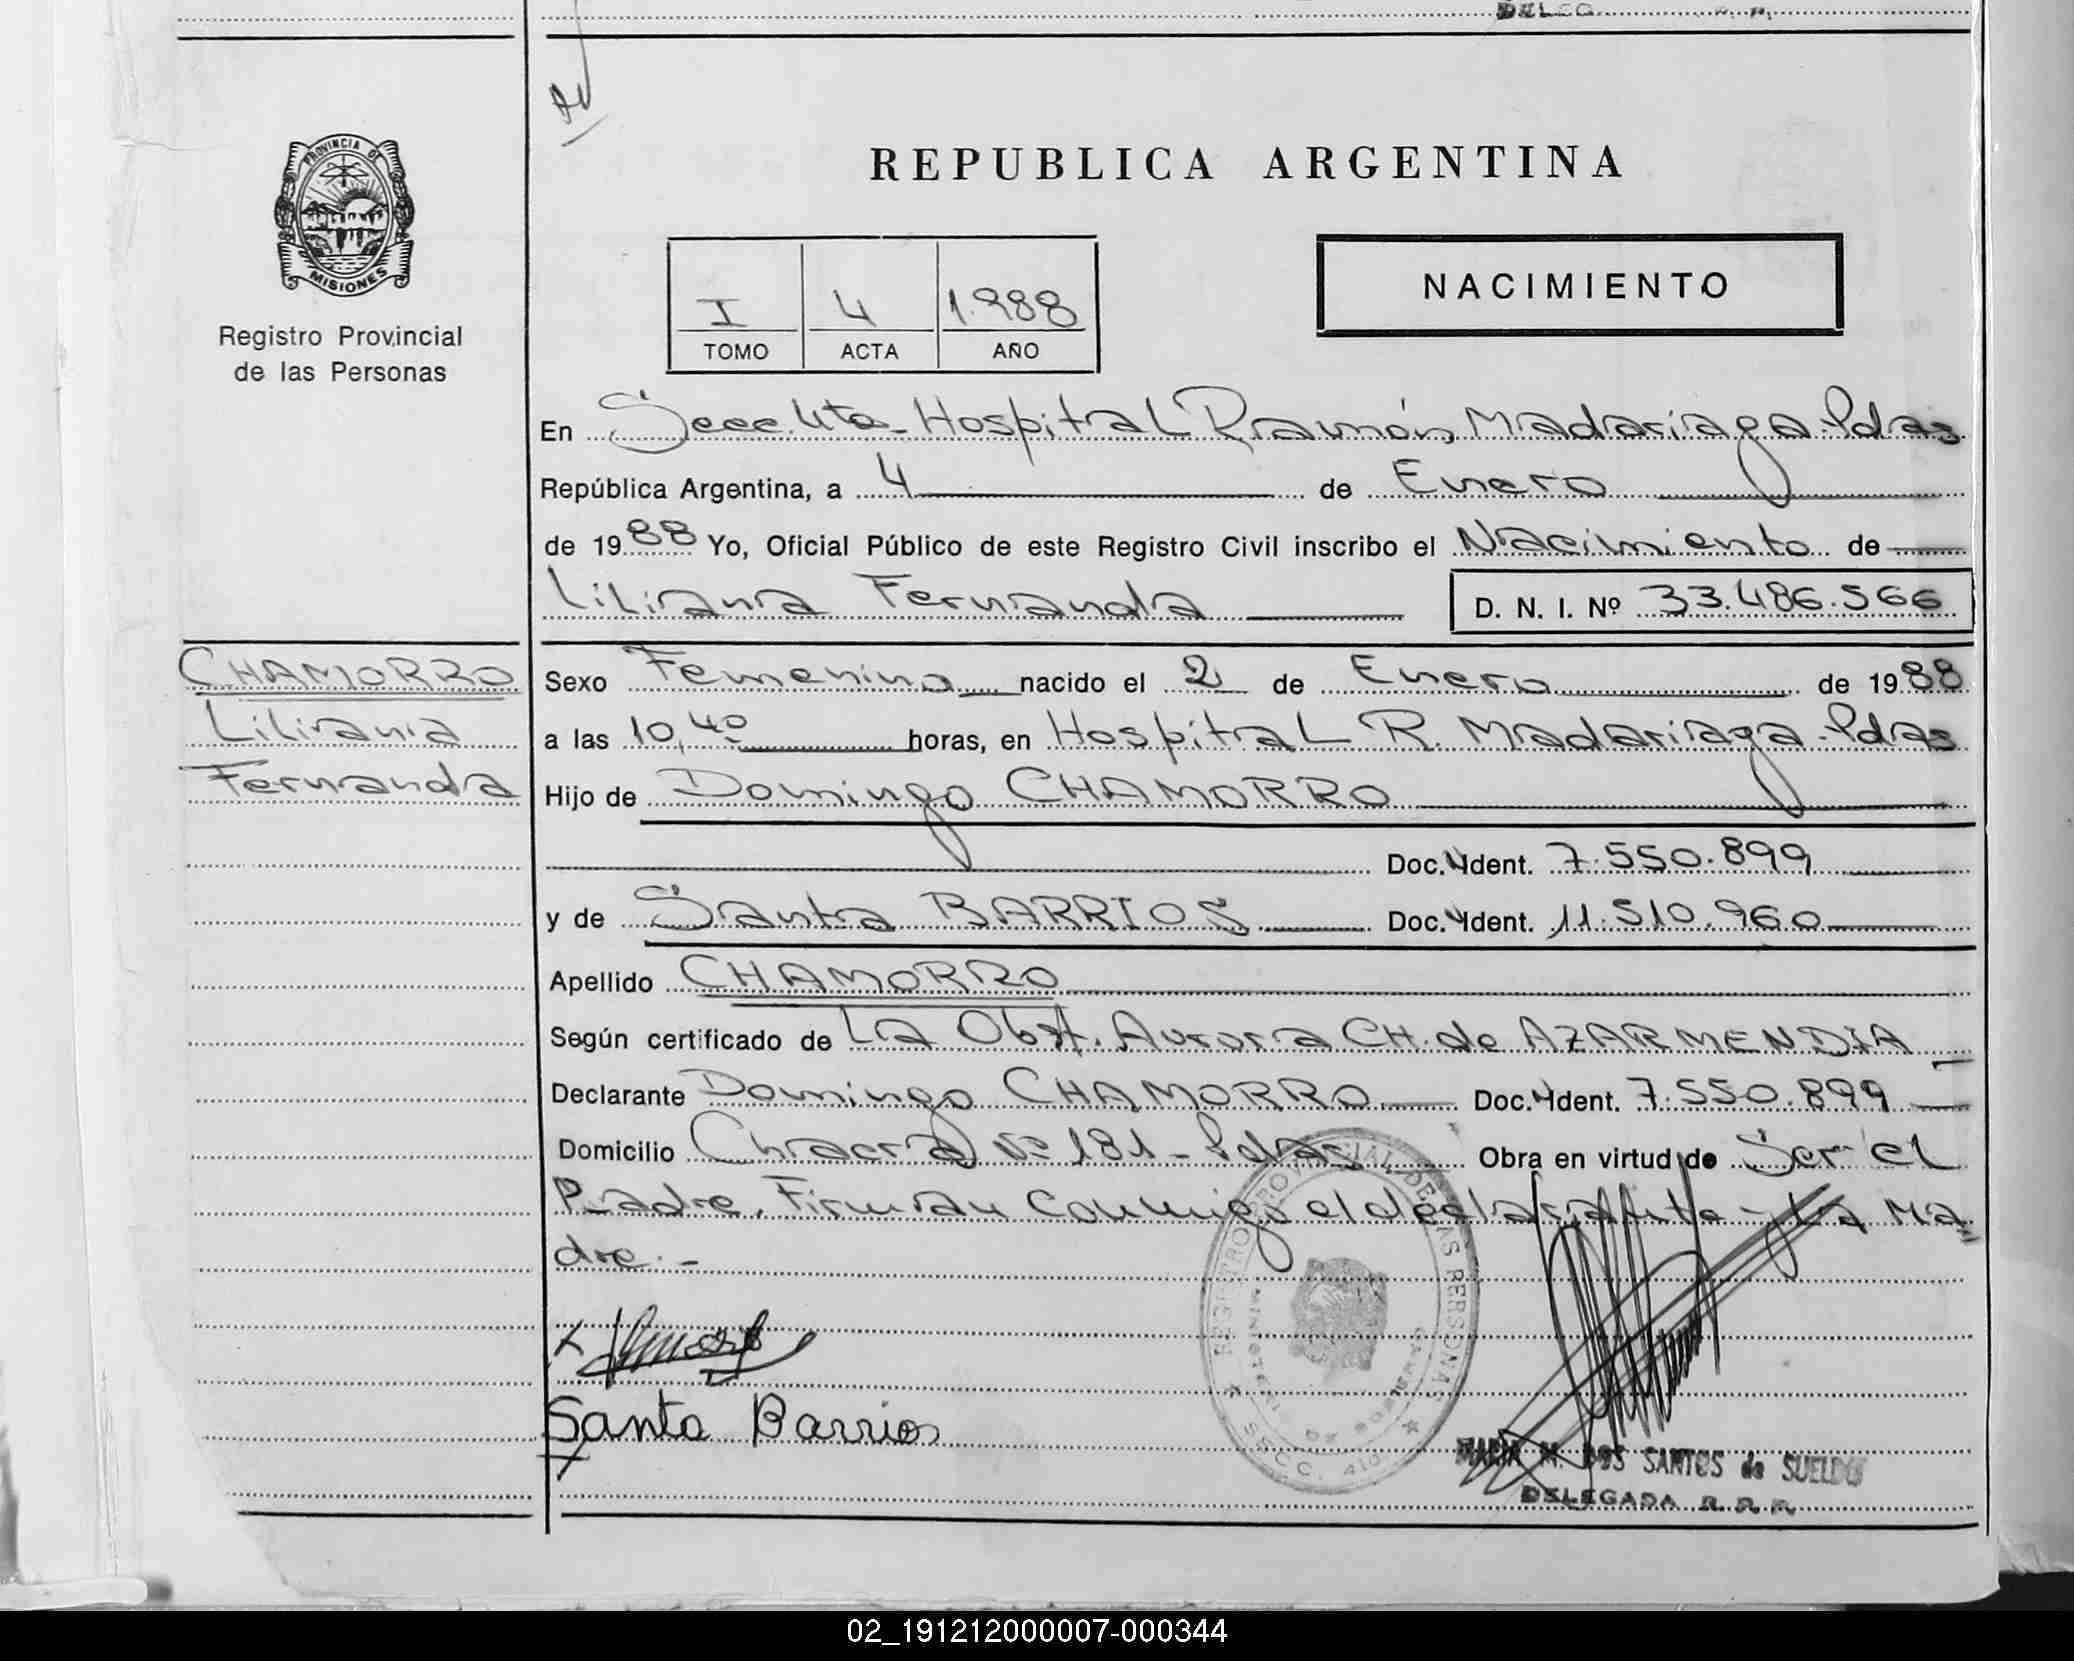 REPUBLICA ARGENTINA
PROVINCIA DE
MISIONES
Registro Provincial
de las Personas
I 4 1.988
TOMO ACTA AÑO
NACIMIENTO
En Secc. 4ta - Hospital Ramón Madariaga - Pdas
República Argentina, a 4 de Enero
de 1988 Yo, Oficial Público de este Registro Civil inscribo el Nacimiento de
Liliana Fernanda D. N. I. Nº 33.486.566
CHAMORRO
Liliana
Fernanda
Sexo Femenino nacido el 2 de Enero de 1988
a las 10,40 horas, en Hospital R. Madariaga - Pdas
Hijo de Domingo CHAMORRO
Doc. Ident. 7.550.899
y de Santa BARRIOS Doc. Ident. 11.510.960
Apellido CHAMORRO
Según certificado de La Obst. Aurora CH. de AZARMENDIA
Declarante Domingo CHAMORRO Doc. Ident. 7.550.899
Domicilio Chacra Nº 181 - Pdas Obra en virtud de Ser el
Padre. Firman conmigo el declarante y La Ma
dre. -
Santa Barrios
REGISTRO PROVINCIAL DE LAS PERSONAS
MARIA M. DOS SANTOS de SUELDO
DELEGADA R. P. P.
02_191212000007-000344